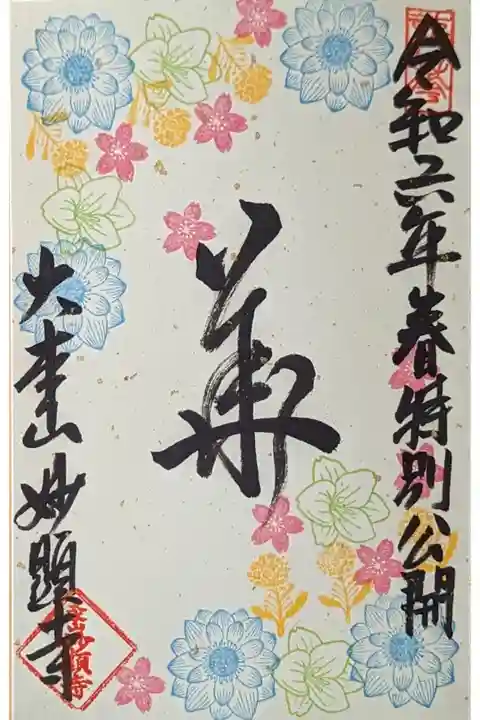 令和六年春特別公開
華
大本山妙顕寺